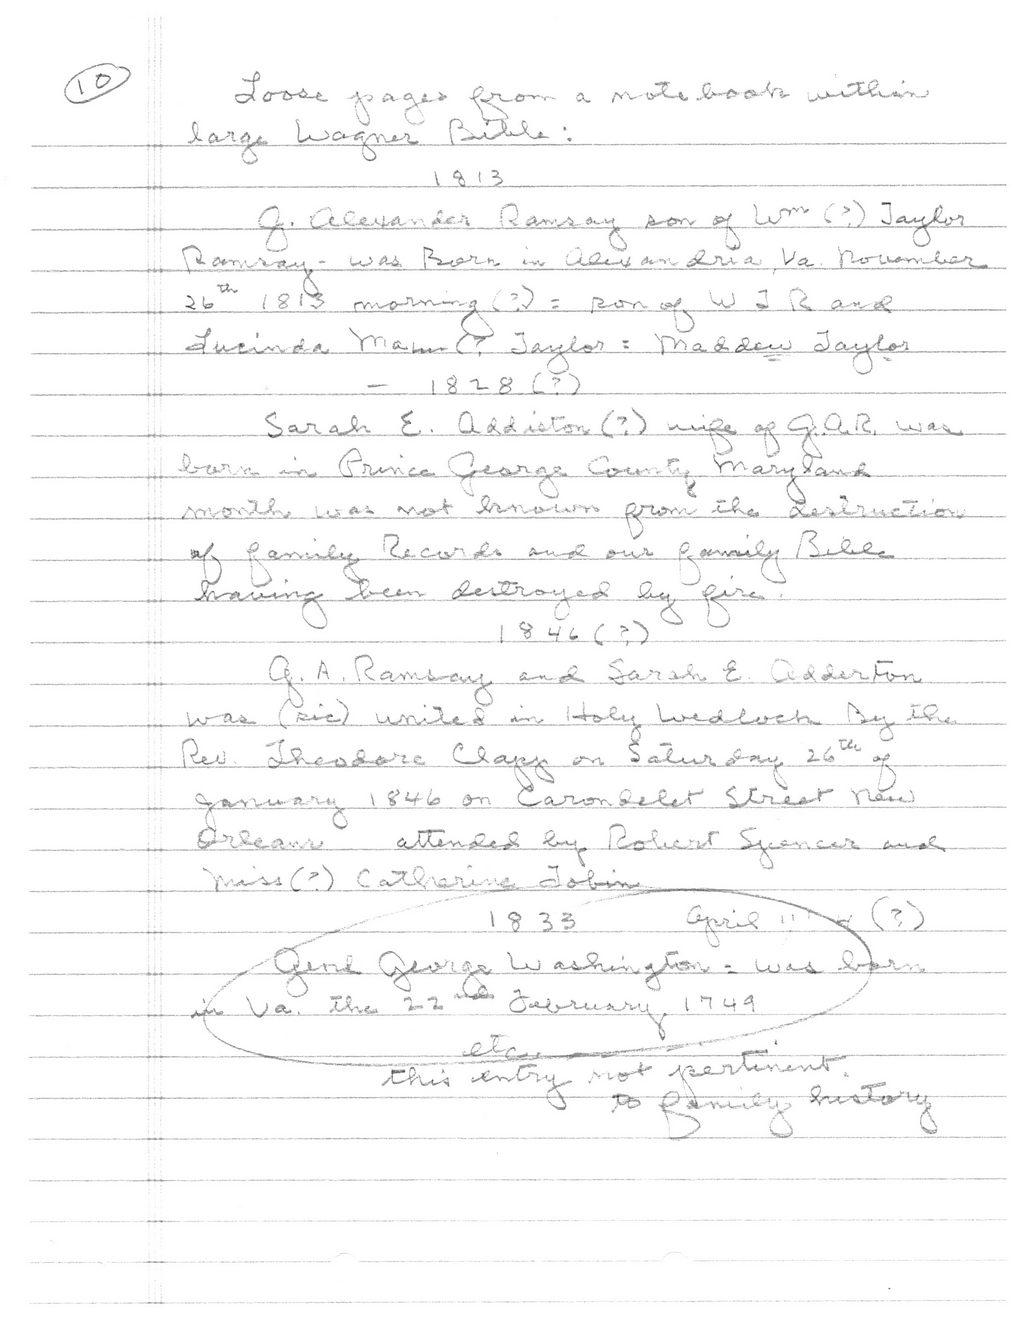 10
Loose pages from a note book within
large Wagner Bible:
1813
G. Alexander Ramsay son of Wm (?) Taylor
Ramsay - was Born in Alexandria, Va. November
26th 1813 morning (?) = son of W T R and
Lucinda (? Taylor = Maddew Taylor
- 1828 (?)
Sarah E. Addiston (?) wife of G.A.R. was
born in Prince George County, Maryland
month was not known from the destruction
of family Records and our family Bible
having been destroyed by fire.
1846 (?)
G. A. Ramsay and Sarah E. Adderton
was (sic) united in Holy Wedlock By the
Rev. Theodore Clapp on Saturday 26th of
January 1846 on Carondelet Street New
Orleans attended by Robert Spencer and
Miss (?) Catherine Tobin
1833 April (?)
Genl George Washington = was born
in Va. the 22nd February, 1749
etc.
this entry not pertinent.
to family history